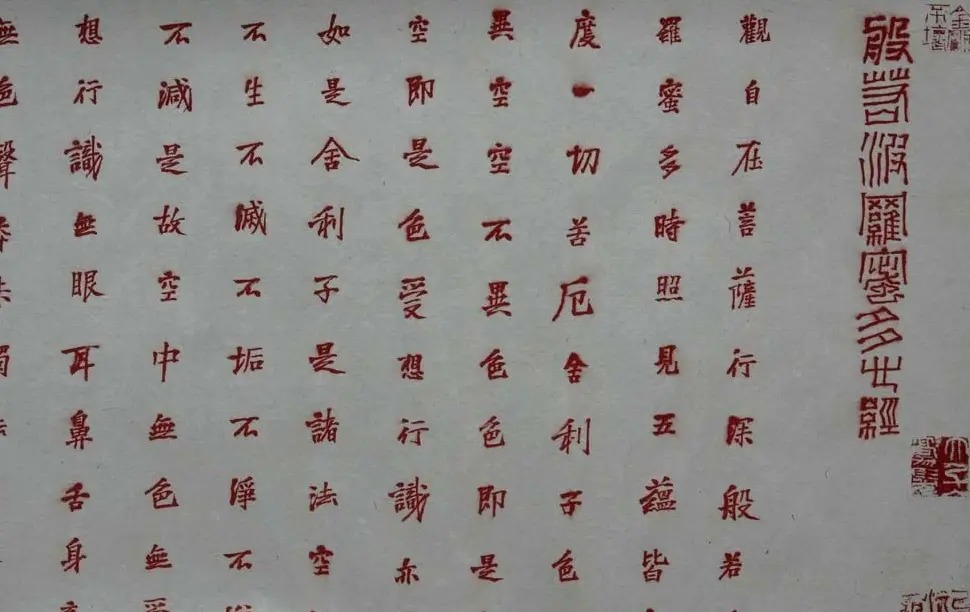 般若波羅密多心經
觀自在菩薩行深般若
羅蜜多時照見五蘊皆
度一切苦厄舍利子色
異空空不異色色即是
空即是色受想行識亦
如是舍利子是諸法空
不生不滅不垢不淨不
不減是故空中無色無
想行識無眼耳鼻舌身
無色聲